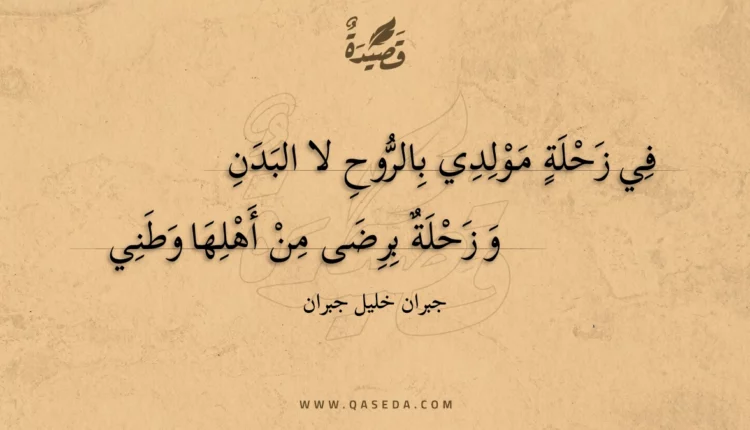 قَصِيدَةٌ
فِي زَحْلَةٍ مَوْلِدِي بِالرُّوحِ لا البَدَنِ
وَ زَحْلَةٌ بِرِضَى مِنْ أَهْلِهَا وَطَنِي
جبران خليل جبران
WWW.QASEDA.COM